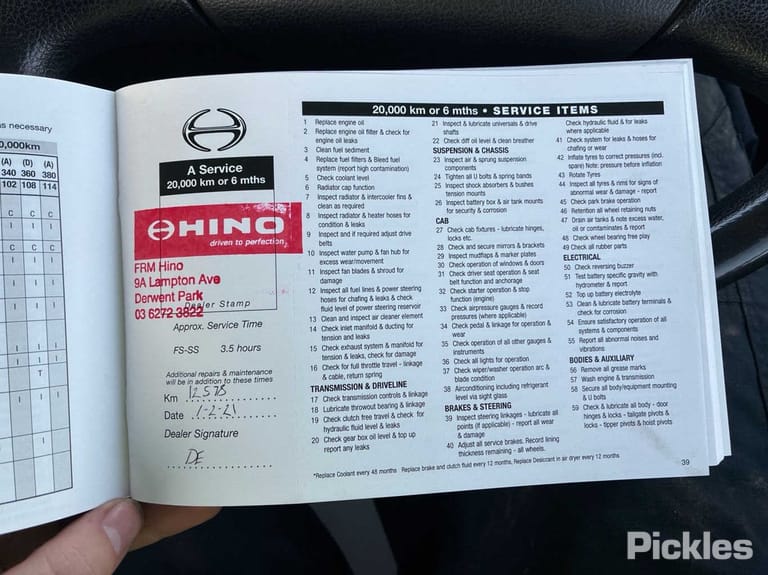 s necessary
0,000km
(A) (D) (A)
340 360 380
102 108 114
C C
I I I
C C C
I I I
T
A Service
20,000 km or 6 mths
HINO
driven to perfection
FRM Hino
9A Lampton Ave
Derwent Park
03 6272 3822
Dealer Stamp
Approx. Service Time
FS-SS 3.5 hours
Additional repairs & maintenance
will be in addition to these times
Km 12575
Date 1-2-21
Dealer Signature
DE
20,000 km or 6 mths • SERVICE ITEMS
1 Replace engine oil
2 Replace engine oil filter & check for
engine oil leaks
3 Clean fuel sediment
4 Replace fuel filters & Bleed fuel
system (report high contamination)
5 Check coolant level
6 Radiator cap function
7 Inspect radiator & intercooler fins &
clean as required
8 Inspect radiator & heater hoses for
condition & leaks
9 Inspect and if required adjust drive
belts
10 Inspect water pump & fan hub for
excess wear/movement
11 Inspect fan blades & shroud for
damage
12 Inspect all fuel lines & power steering
hoses for chafing & leaks & check
fluid level of power steering reservoir
13 Clean and inspect air cleaner element
14 Check inlet manifold & ducting for
tension and leaks
15 Check exhaust system & manifold for
tension & leaks, check for damage
16 Check for full throttle travel - linkage
& cable, return spring
TRANSMISSION & DRIVELINE
17 Check transmission controls & linkage
18 Lubricate throwout bearing & linkage
19 Check clutch free travel & check for
hydraulic fluid level & leaks
20 Check gear box oil level & top up
report any leaks
21 Inspect & lubricate universals & drive
shafts
22 Check diff oil level & clean breather
SUSPENSION & CHASSIS
23 Inspect air & sprung suspension
components
24 Tighten all U bolts & spring bands
25 Inspect shock absorbers & bushes
tension mounts
26 Inspect battery box & air tank mounts
for security & corrosion
CAB
27 Check cab fixtures - lubricate hinges,
locks etc.
28 Check and secure mirrors & brackets
29 Inspect mudflaps & marker plates
30 Check operation of windows & doors
31 Check driver seat operation & seat
belt function and anchorage
32 Check starter operation & stop
function (engine)
33 Check airpressure gauges & record
pressures (where applicable)
34 Check pedal & linkage for operation &
wear
35 Check operation of all other gauges &
instruments
36 Check all lights for operation
37 Check wiper/washer operation arc &
blade condition
38 Airconditioning including refrigerant
level via sight glass
BRAKES & STEERING
39 Inspect steering linkages - lubricate all
points (if applicable) - report all wear
& damage
40 Adjust all service brakes. Record lining
thickness remaining - all wheels.
Check hydraulic fluid & for leaks
where applicable
41 Check system for leaks & hoses for
chafing or wear
42 Inflate tyres to correct pressures (incl.
spare) Note: pressure before inflation
43 Rotate Tyres
44 Inspect all tyres & rims for signs of
abnormal wear & damage - report
45 Check park brake operation
46 Retention all wheel retaining nuts
47 Drain air tanks & note excess water,
oil or contaminates & report
48 Check wheel bearing free play
49 Check all rubber parts
ELECTRICAL
50 Check reversing buzzer
51 Test battery specific gravity with
hydrometer & report
52 Top up battery electrolyte
53 Clean & lubricate battery terminals &
check for corrosion
54 Ensure satisfactory operation of all
systems & components
55 Report all abnormal noises and
vibrations
BODIES & AUXILIARY
56 Remove all grease marks
57 Wash engine & transmission
58 Secure all body/equipment mounting
& U bolts
59 Check & lubricate all body - door
hinges & locks - tailgate pivots &
locks - tipper pivots & hoist pivots
*Replace Coolant every 48 months Replace brake and clutch fluid every 12 months, Replace Desiccant in air dryer every 12 months
39
Pickles